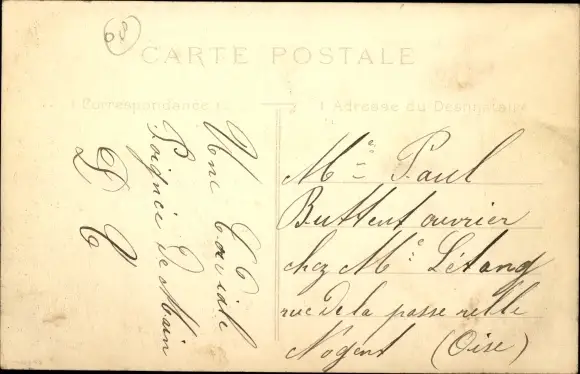 68
CARTE POSTALE
Correspondance
Adresse du Destinataire
Une Cordiale
Poignée de Main
D C
Me Paul
Buttent ouvrier
chez Me Létang
rue de la passerelle
Nogent (Oise)